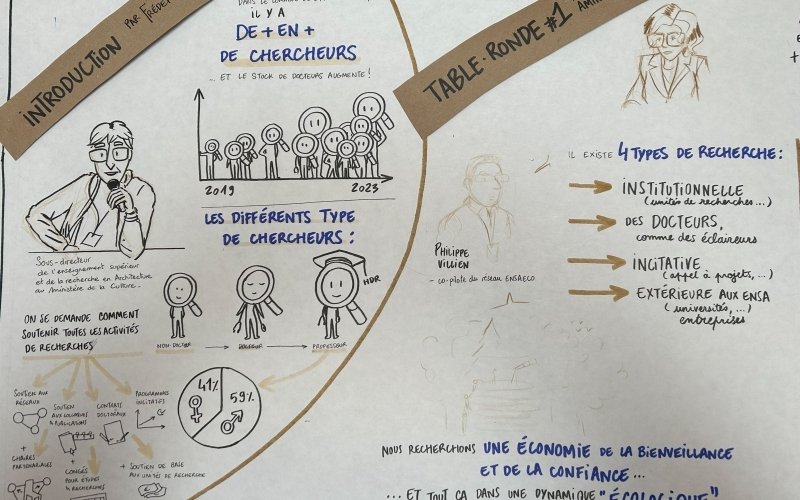 INTRODUCTION PAR
IL Y A
DE + EN +
DE CHERCHEURS
... ET LE STOCK DE DOCTEURS AUGMENTE !
2019
2023
SOUS-DIRECTEUR
DE L'ENSEIGNEMENT SUPÉRIEUR
ET DE LA RECHERCHE EN ARCHITECTURE
AU MINISTÈRE DE LA CULTURE.
LES DIFFÉRENTS TYPE
DE CHERCHEURS :
HDR
NON-DOCTEUR
DOCTEUR
PROFESSEUR
ON SE DEMANDE COMMENT
SOUTENIR TOUTES LES ACTIVITÉS
DE RECHERCHES
SOUTIEN AUX
RÉSEAUX
SOUTIEN
AUX COLLOQUES
& PUBLICATIONS
CONTRATS
DOCTORAUX
PROGRAMMES
INCITATIFS
+
CHAIRES
PARTENARIALES
+
CONGÉS
POUR ÉTUDES
& RECHERCHE
+ SOUTIEN DE BASE
AUX UNITÉS DE RECHERCHE
41%
59%
TABLE-RONDE #1
PHILIPPE
VILLIEN
- CO-PILOTE DU RÉSEAU ENSAECO
IL EXISTE 4 TYPES DE RECHERCHE :
INSTITUTIONNELLE
(unités de recherches...)
DES DOCTEURS,
comme des éclaireurs
INCITATIVE
(appel à projets, ...)
EXTÉRIEURE AUX ENSA
(universités, ...)
entreprises
NOUS RECHERCHONS UNE ÉCONOMIE DE LA BIENVEILLANCE
ET DE LA CONFIANCE ...
... ET TOUT ÇA DANS UNE DYNAMIQUE "ÉCOLOGIQUE"